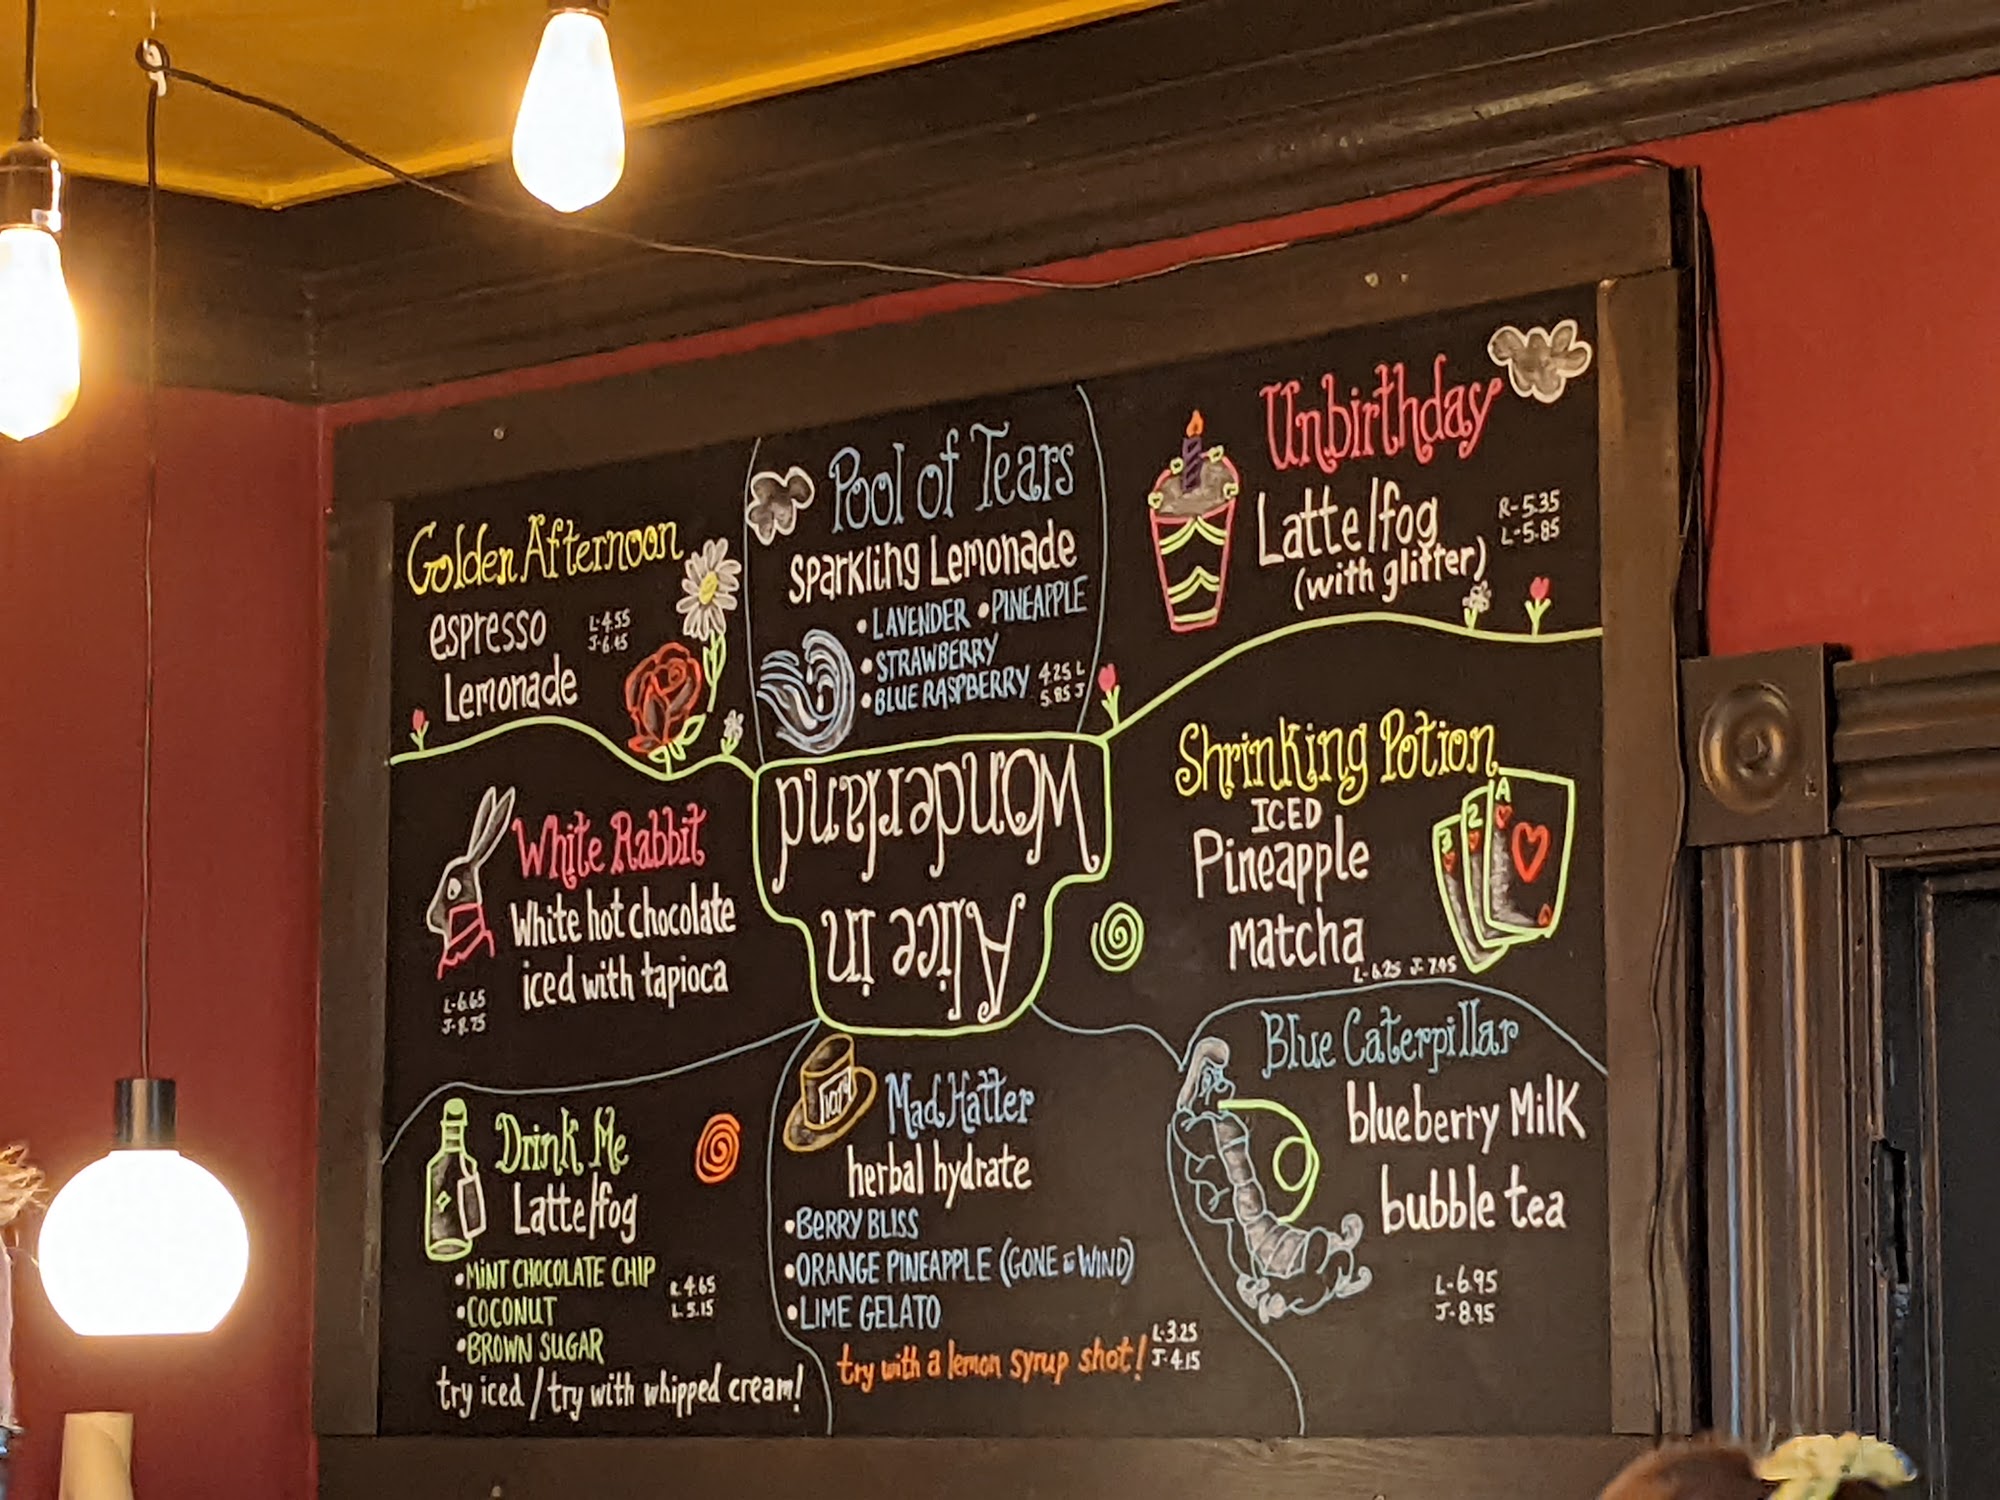 Golden Afternoon
espresso
Lemonade
L-4.55
J-6.45
Pool of Tears
Sparkling Lemonade
• LAVENDER • PINEAPPLE
• STRAWBERRY
• BLUE RASPBERRY
4.25 L
5.85 J
Unbirthday
Latte/fog
(with glitter)
R-5.35
L-5.85
White Rabbit
White hot chocolate
iced with tapioca
L-6.65
J-8.75
Alice in
Wonderland
Shrinking Potion
ICED
Pineapple
Matcha
L-6.25 J-7.95
3
2
A
Drink Me
Latte/fog
• MINT CHOCOLATE CHIP
• COCONUT
• BROWN SUGAR
R-4.65
L-5.15
try iced / try with whipped cream!
Mad Hatter
herbal hydrate
• BERRY BLISS
• ORANGE PINEAPPLE (GONE WIND)
• LIME GELATO
try with a lemon syrup shot!
L-3.25
J-4.15
Blue Caterpillar
blueberry Milk
bubble tea
L-6.95
J-8.95